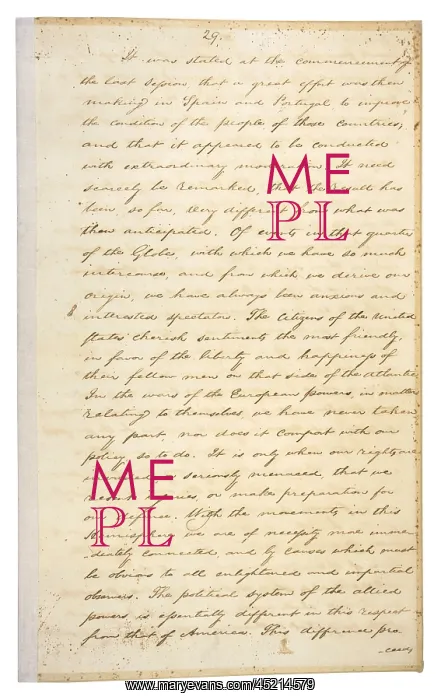 29.
It was stated at the commencement of
the last session, that a great effort was then
making in Spain and Portugal to improve
the condition of the people of those countries,
and that it appeared to be conducted
with extraordinary moderation. It need
scarcely be remarked, that the result has
been, so far, very different from what was
then anticipated. Of events in that quarter
of the Globe, with which we have so much
intercourse, and from which we derive our
origin, we have always been anxious and
interested spectators. The Citizens of the United
States cherish sentiments the most friendly,
in favor of the liberty and happiness of
their fellow men on that side of the Atlantic.
In the wars of the European powers, in matters
relating to themselves, we have never taken
any part, nor does it comport with our
policy, so to do. It is only when our rights are
seriously menaced, that we
or make preparations for
our defence. With the movements in this
Hemisphere we are of necessity more imme
diately connected, and by causes which must
be obvious to all enlightened and impartial
observers. The political system of the allied
powers, is essentially different in this respect
from that of America. This difference pro
-ceeds
ME
PL
ME
PL
www.maryevans.com/45214579